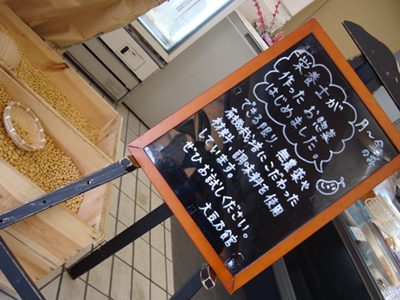 月～金
栄養士が
作ったお惣菜
はじめました。
できる限り 無農薬や
有機栽培にこだわった
材料、調味料を使用
しています。
ぜひお試しください。
大豆乃館